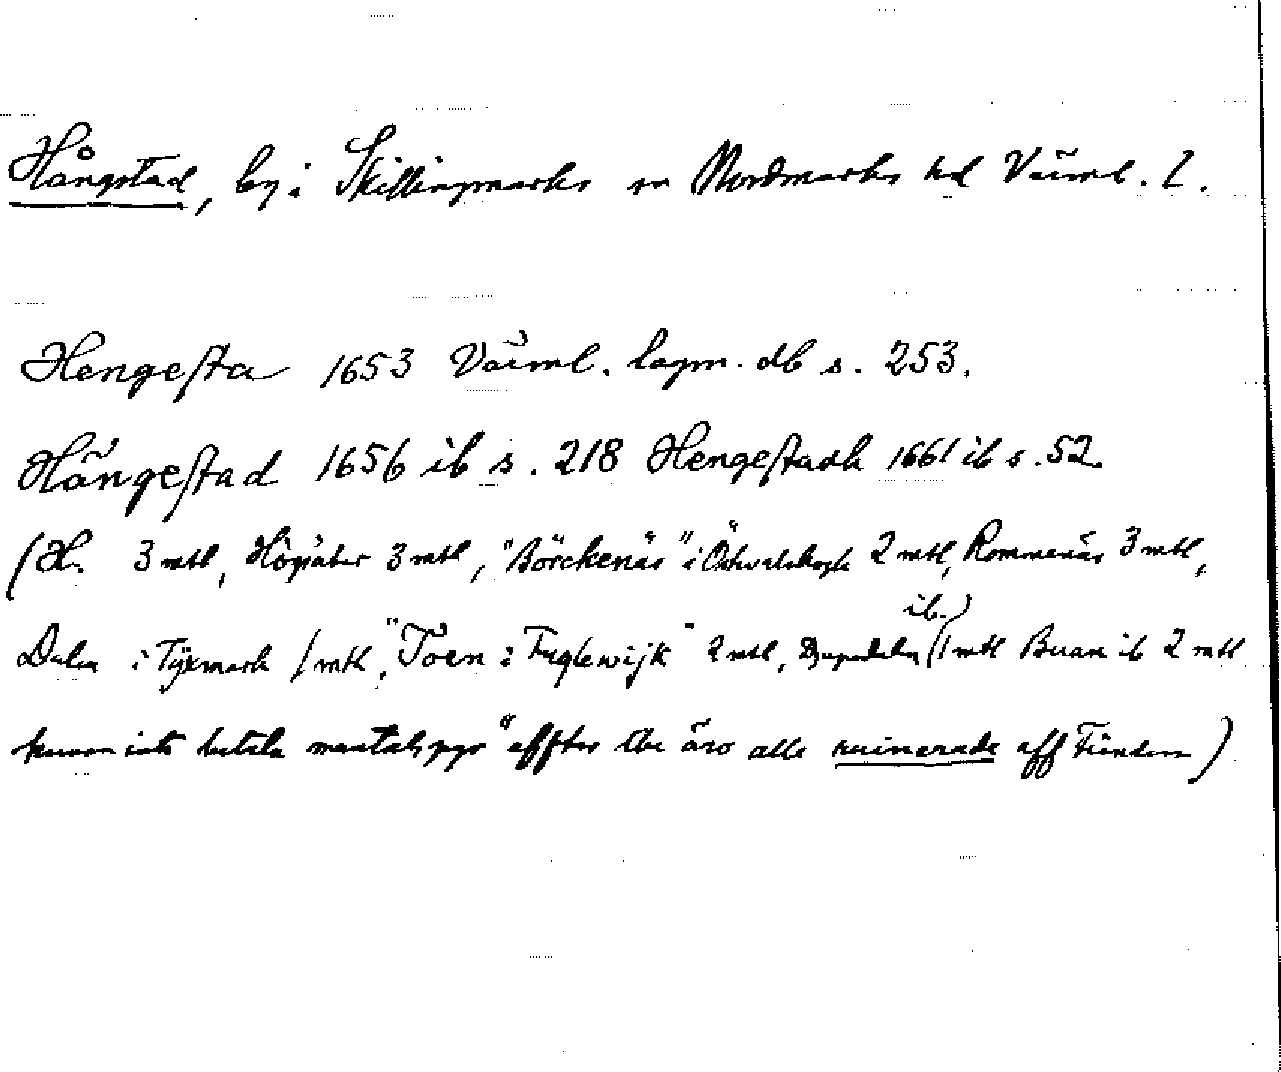 Hångstad, by i Skillingmarks sn Nordmarks hd Värml. l.
Hengesta 1653 Värml. lagm. db s. 253.
Hängestad 1656 ib s. 218 Hengestadh 1661 ib s. 52.
(H. 3 mtl, Högsäter 3 mtl, "Börckenäs" i Östwalskogh 2 mtl, Rommenäs 3 mtl,
Dalen i Tÿxmark 1 mtl, "Toen i Fuglewijk" 2 mtl, Djupedalen (ib.) 1 mtl Buane ib 2 mtl
kunna inte betala mantalspgr "effter the äro alle ruinerade aff Fienden)